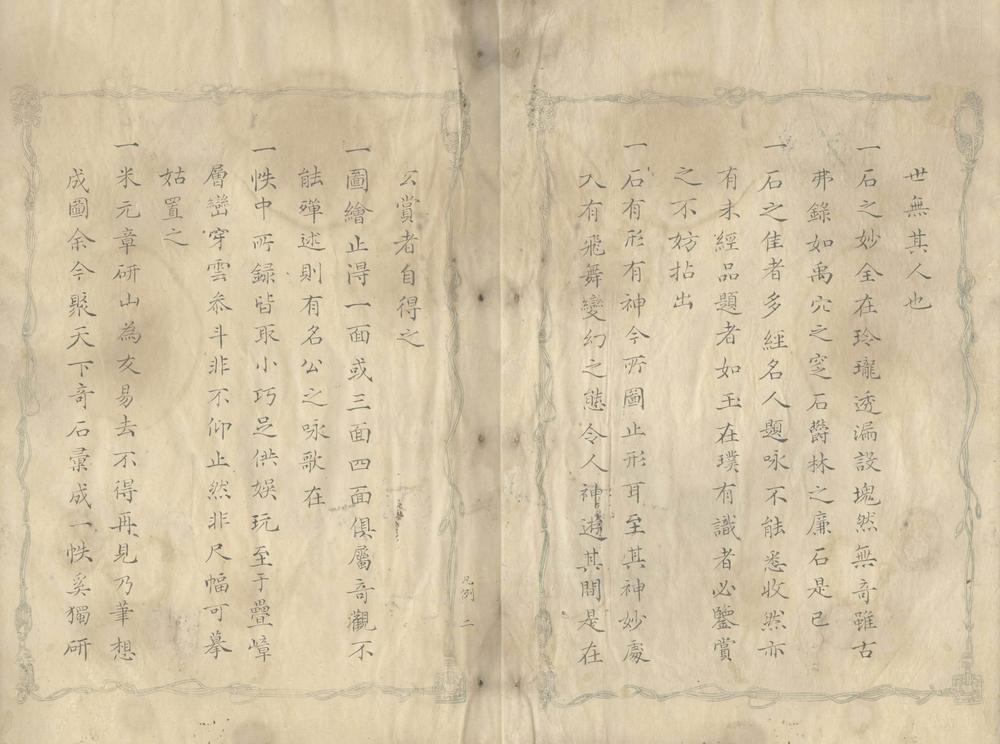 世無其人也
一石之妙全在玲瓏透漏設塊然無奇雖古
弗錄如禹穴之窆石欝林之廉石是已
一石之佳者多經名人題咏不能悉收然亦
有未經品題者如玉在璞有識者必鑒賞
之不妨拈出
一石有形有神今所圖止形耳至其神妙處
大有飛舞變幻之態令人神遊其間是在
公賞者自得之
一圖繪止得一面或三面四面俱屬奇觀不
能殫述則有名公之咏歌在
一帙中所録皆取小巧足供娛玩至于疊嶂
層巒穿雲參斗非不仰止然非尺幅可摹
姑置之
一米元章研山為友易去不得再見乃筆想
成圖余今聚天下奇石彙成一帙奚獨研
凡例 二